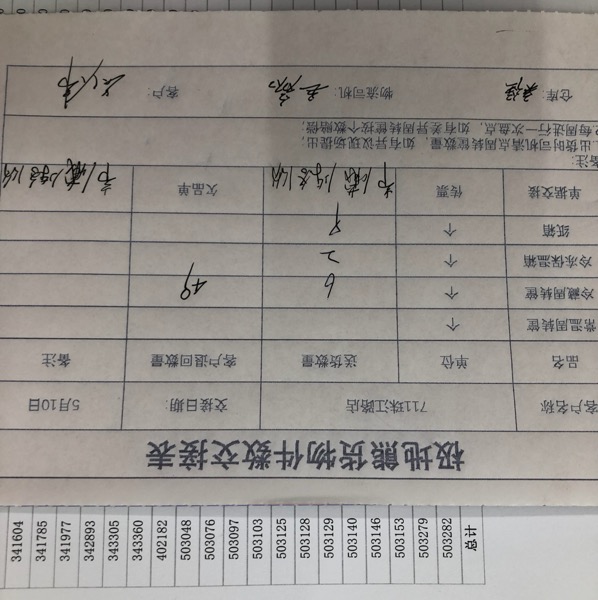 极地熊货物件数交接表
客户名称 711珠江路店 交接日期: 5月10日
品名 单位 送货数量 客户退回数量 备注
常温周转筐 个
冷藏周转筐 个 6 49
冷冻保温箱 个 2
纸箱 个
单据交接 传票 欠品单
备注:
出货时司机清点周转筐数量，如有异议现场提出;
每周进行一次盘点，如有差异周转筐按个数赔偿;
仓库: 物流司机: 客户:
341604
341785
341977
342893
343305
343360
402182
503048
503076
503097
503103
503125
503128
503129
503140
503146
503153
503279
503282
总计